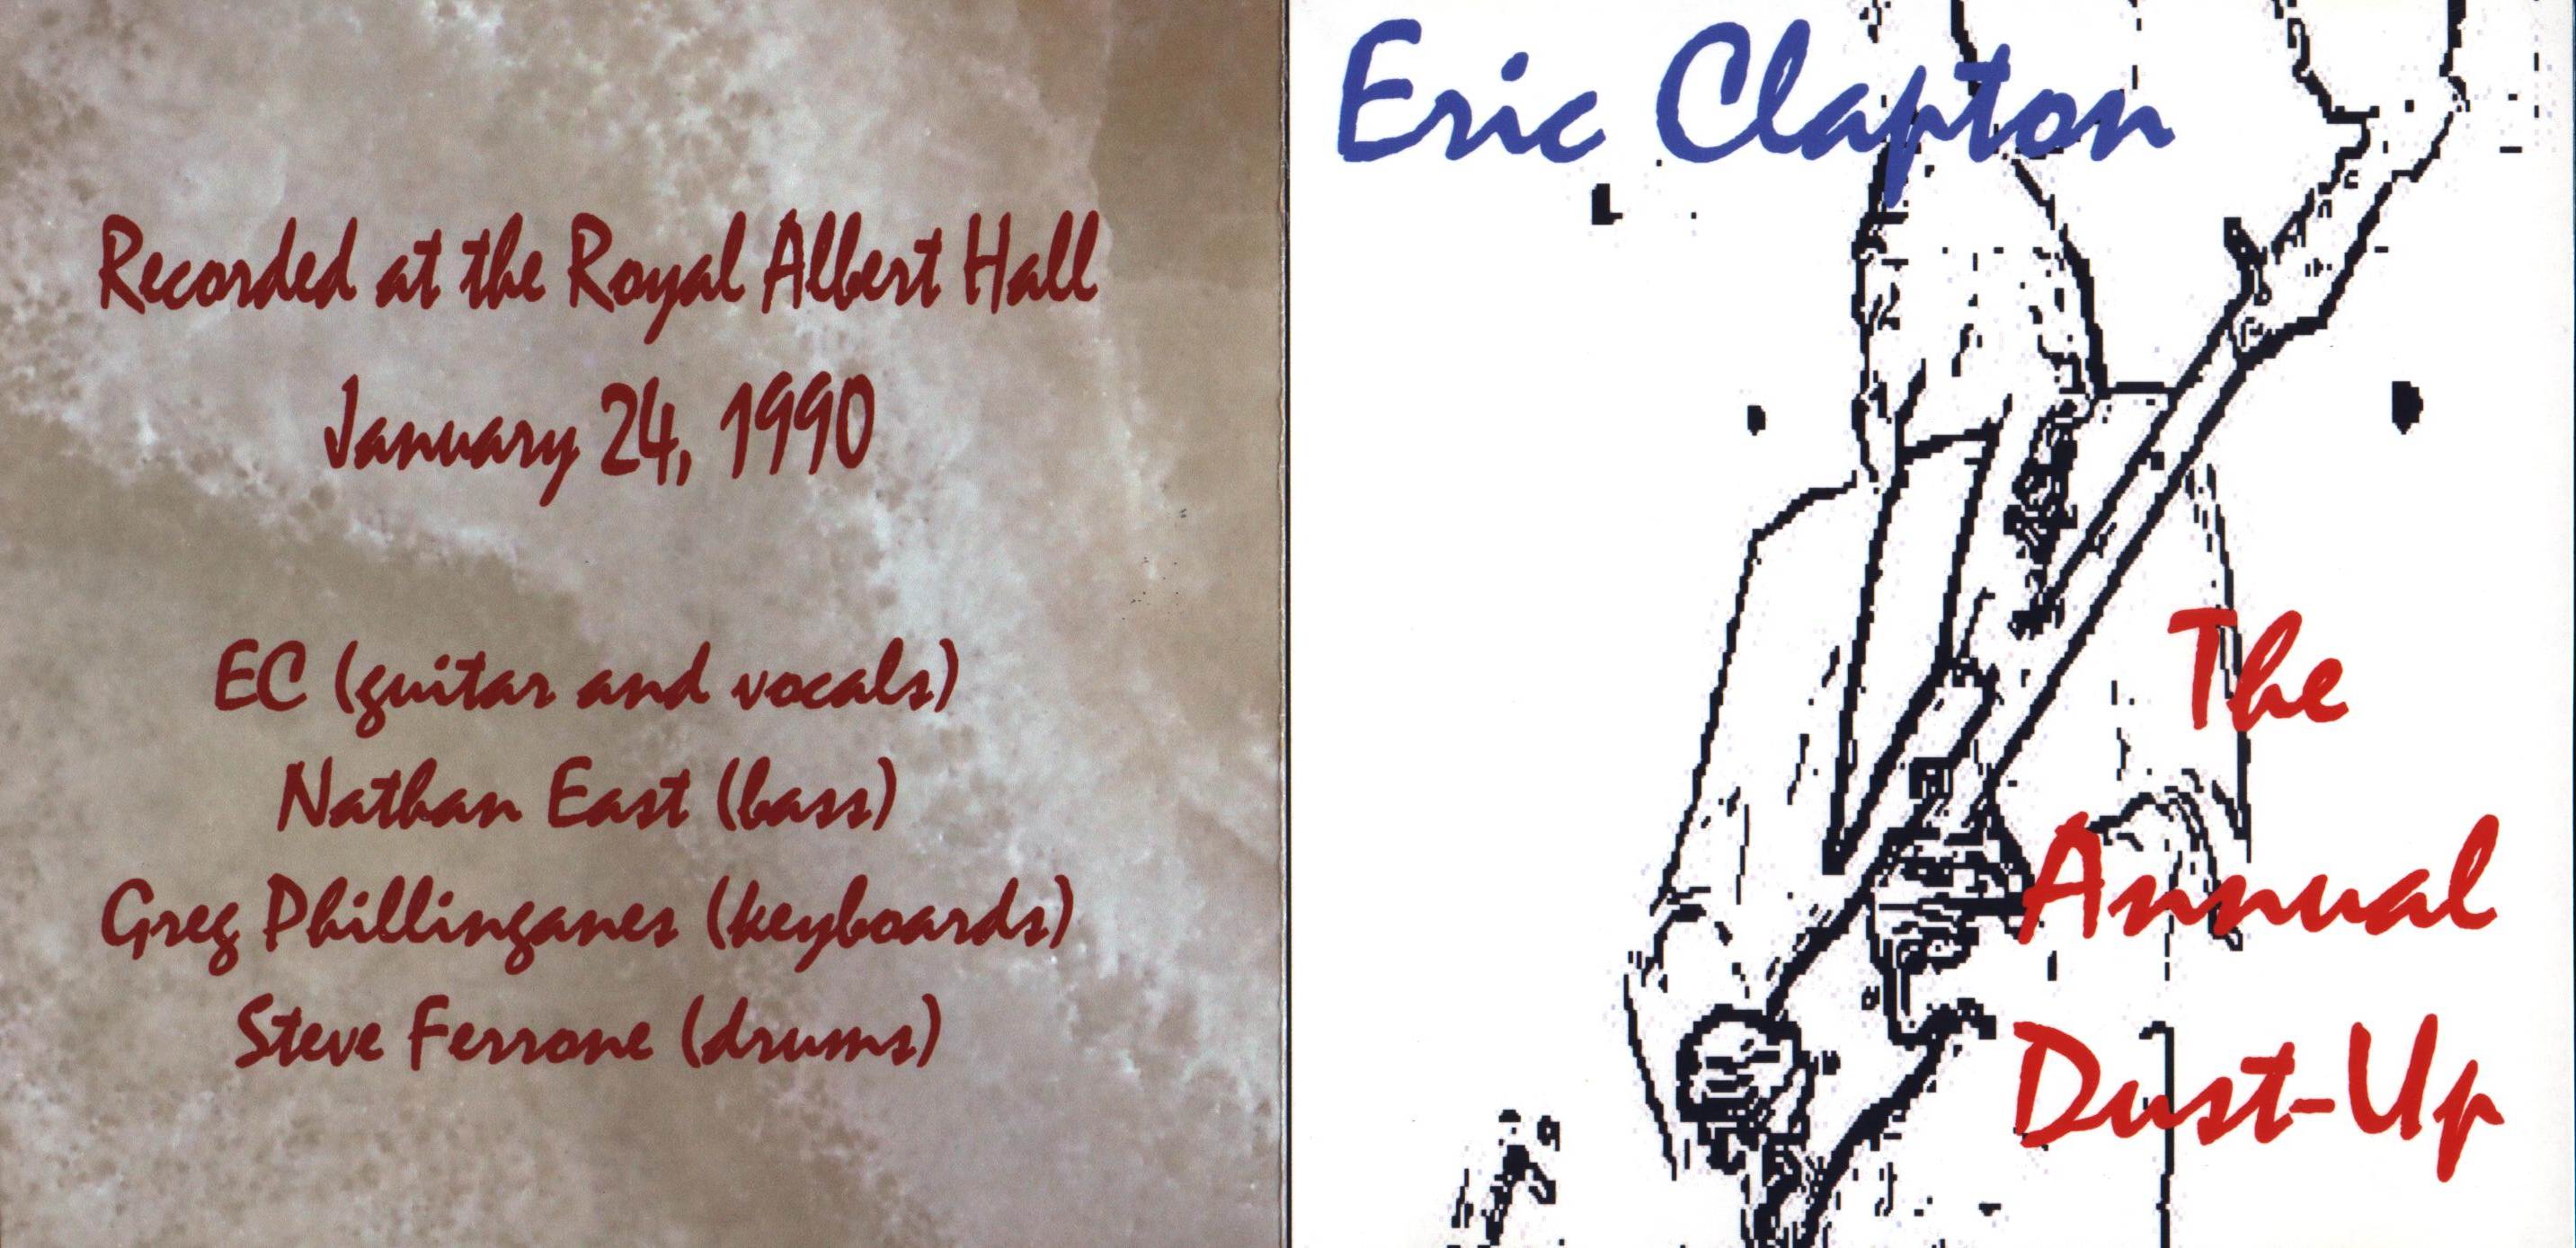 Recorded at the Royal Albert Hall
January 24, 1990
EC (guitar and vocals)
Nathan East (bass)
Greg Phillinganes (keyboards)
Steve Ferrone (drums)
Eric Clapton
The
Annual
Dust-Up